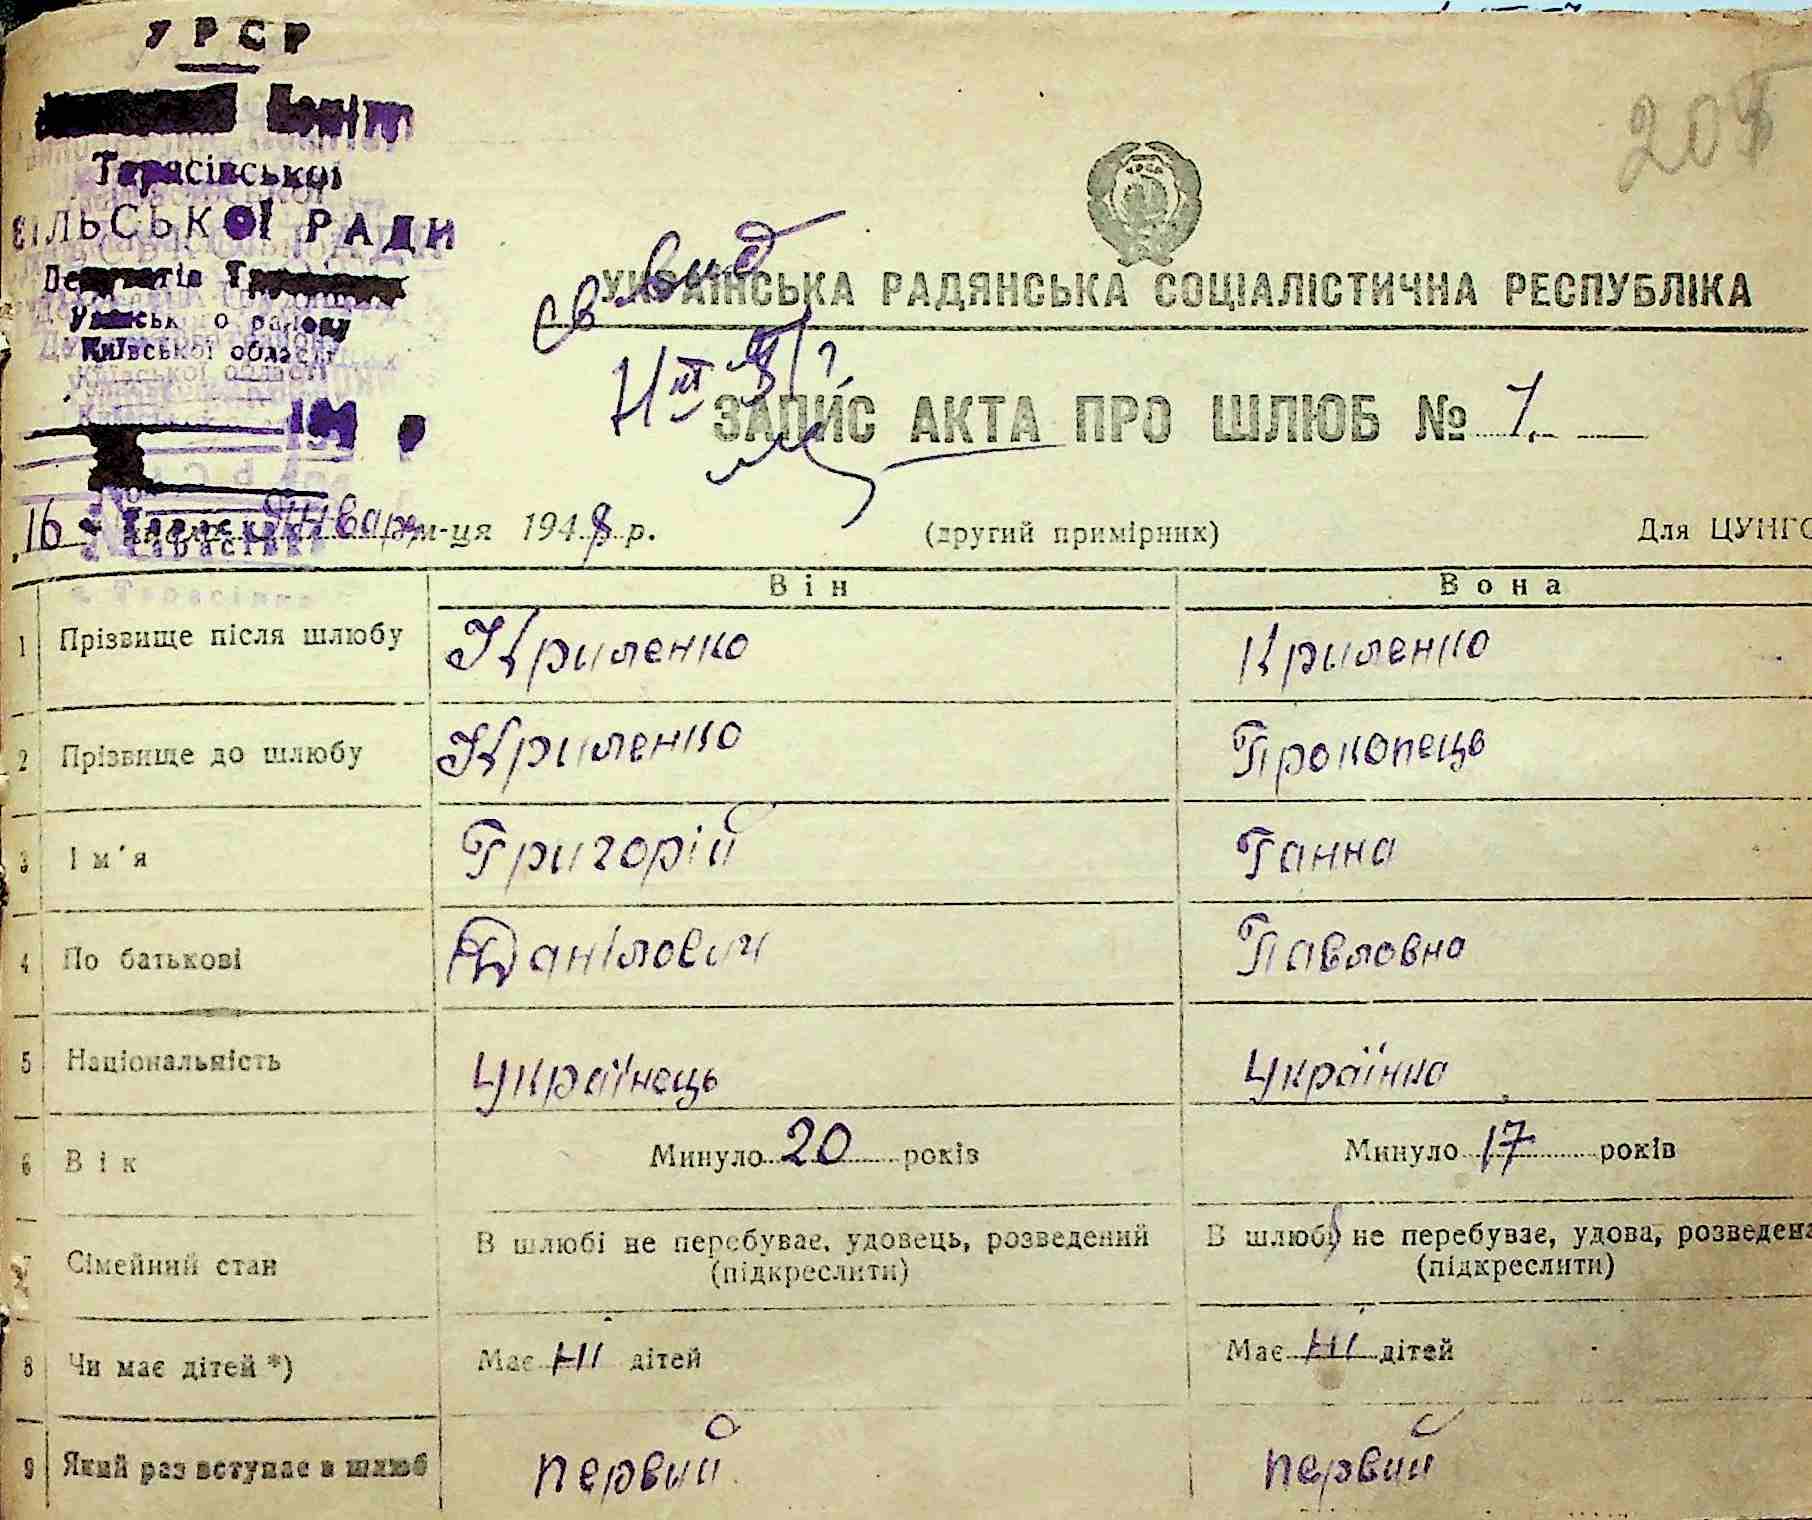 УРСР
Тарасівської
СІЛЬСЬКОЇ РАДИ
Київської області
УРСР
20
УКРАЇНСЬКА РАДЯНСЬКА СОЦІАЛІСТИЧНА РЕСПУБЛІКА
ЗАПИС АКТА ПРО ШЛЮБ № 1
16 Января м-ця 1948 р. (другий примірник) Для ЦУНГО
с. Тарасівка
Він Вона
1 Прізвище після шлюбу Криленко Криленко
2 Прізвище до шлюбу Криленко Прокопець
3 Ім'я Григорій Ганна
4 По батькові Данілович Павловна
5 Національність Українець Українка
6 Вік Минуло 20 років Минуло 17 років
7 Сімейний стан В шлюбі не перебуває, удовець, розведений В шлюбі не перебуває, удова, розведена
(підкреслити) (підкреслити)
8 Чи має дітей *) Має ні дітей Має ні дітей
9 Який раз вступає в шлюб первий первий